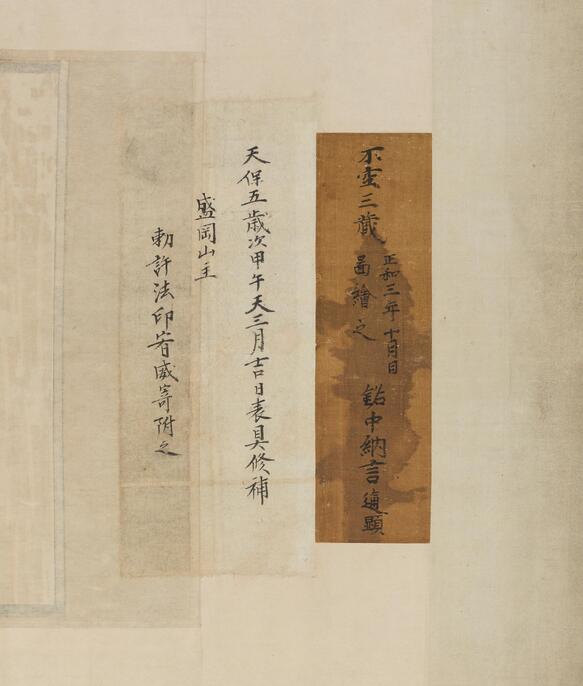 不空三蔵
正和三年十月日
圖繪之
鉛中納言通顕
天保五歳次甲午天三月吉日表具修補
盛岡山主
勅許法印宥威寄附之